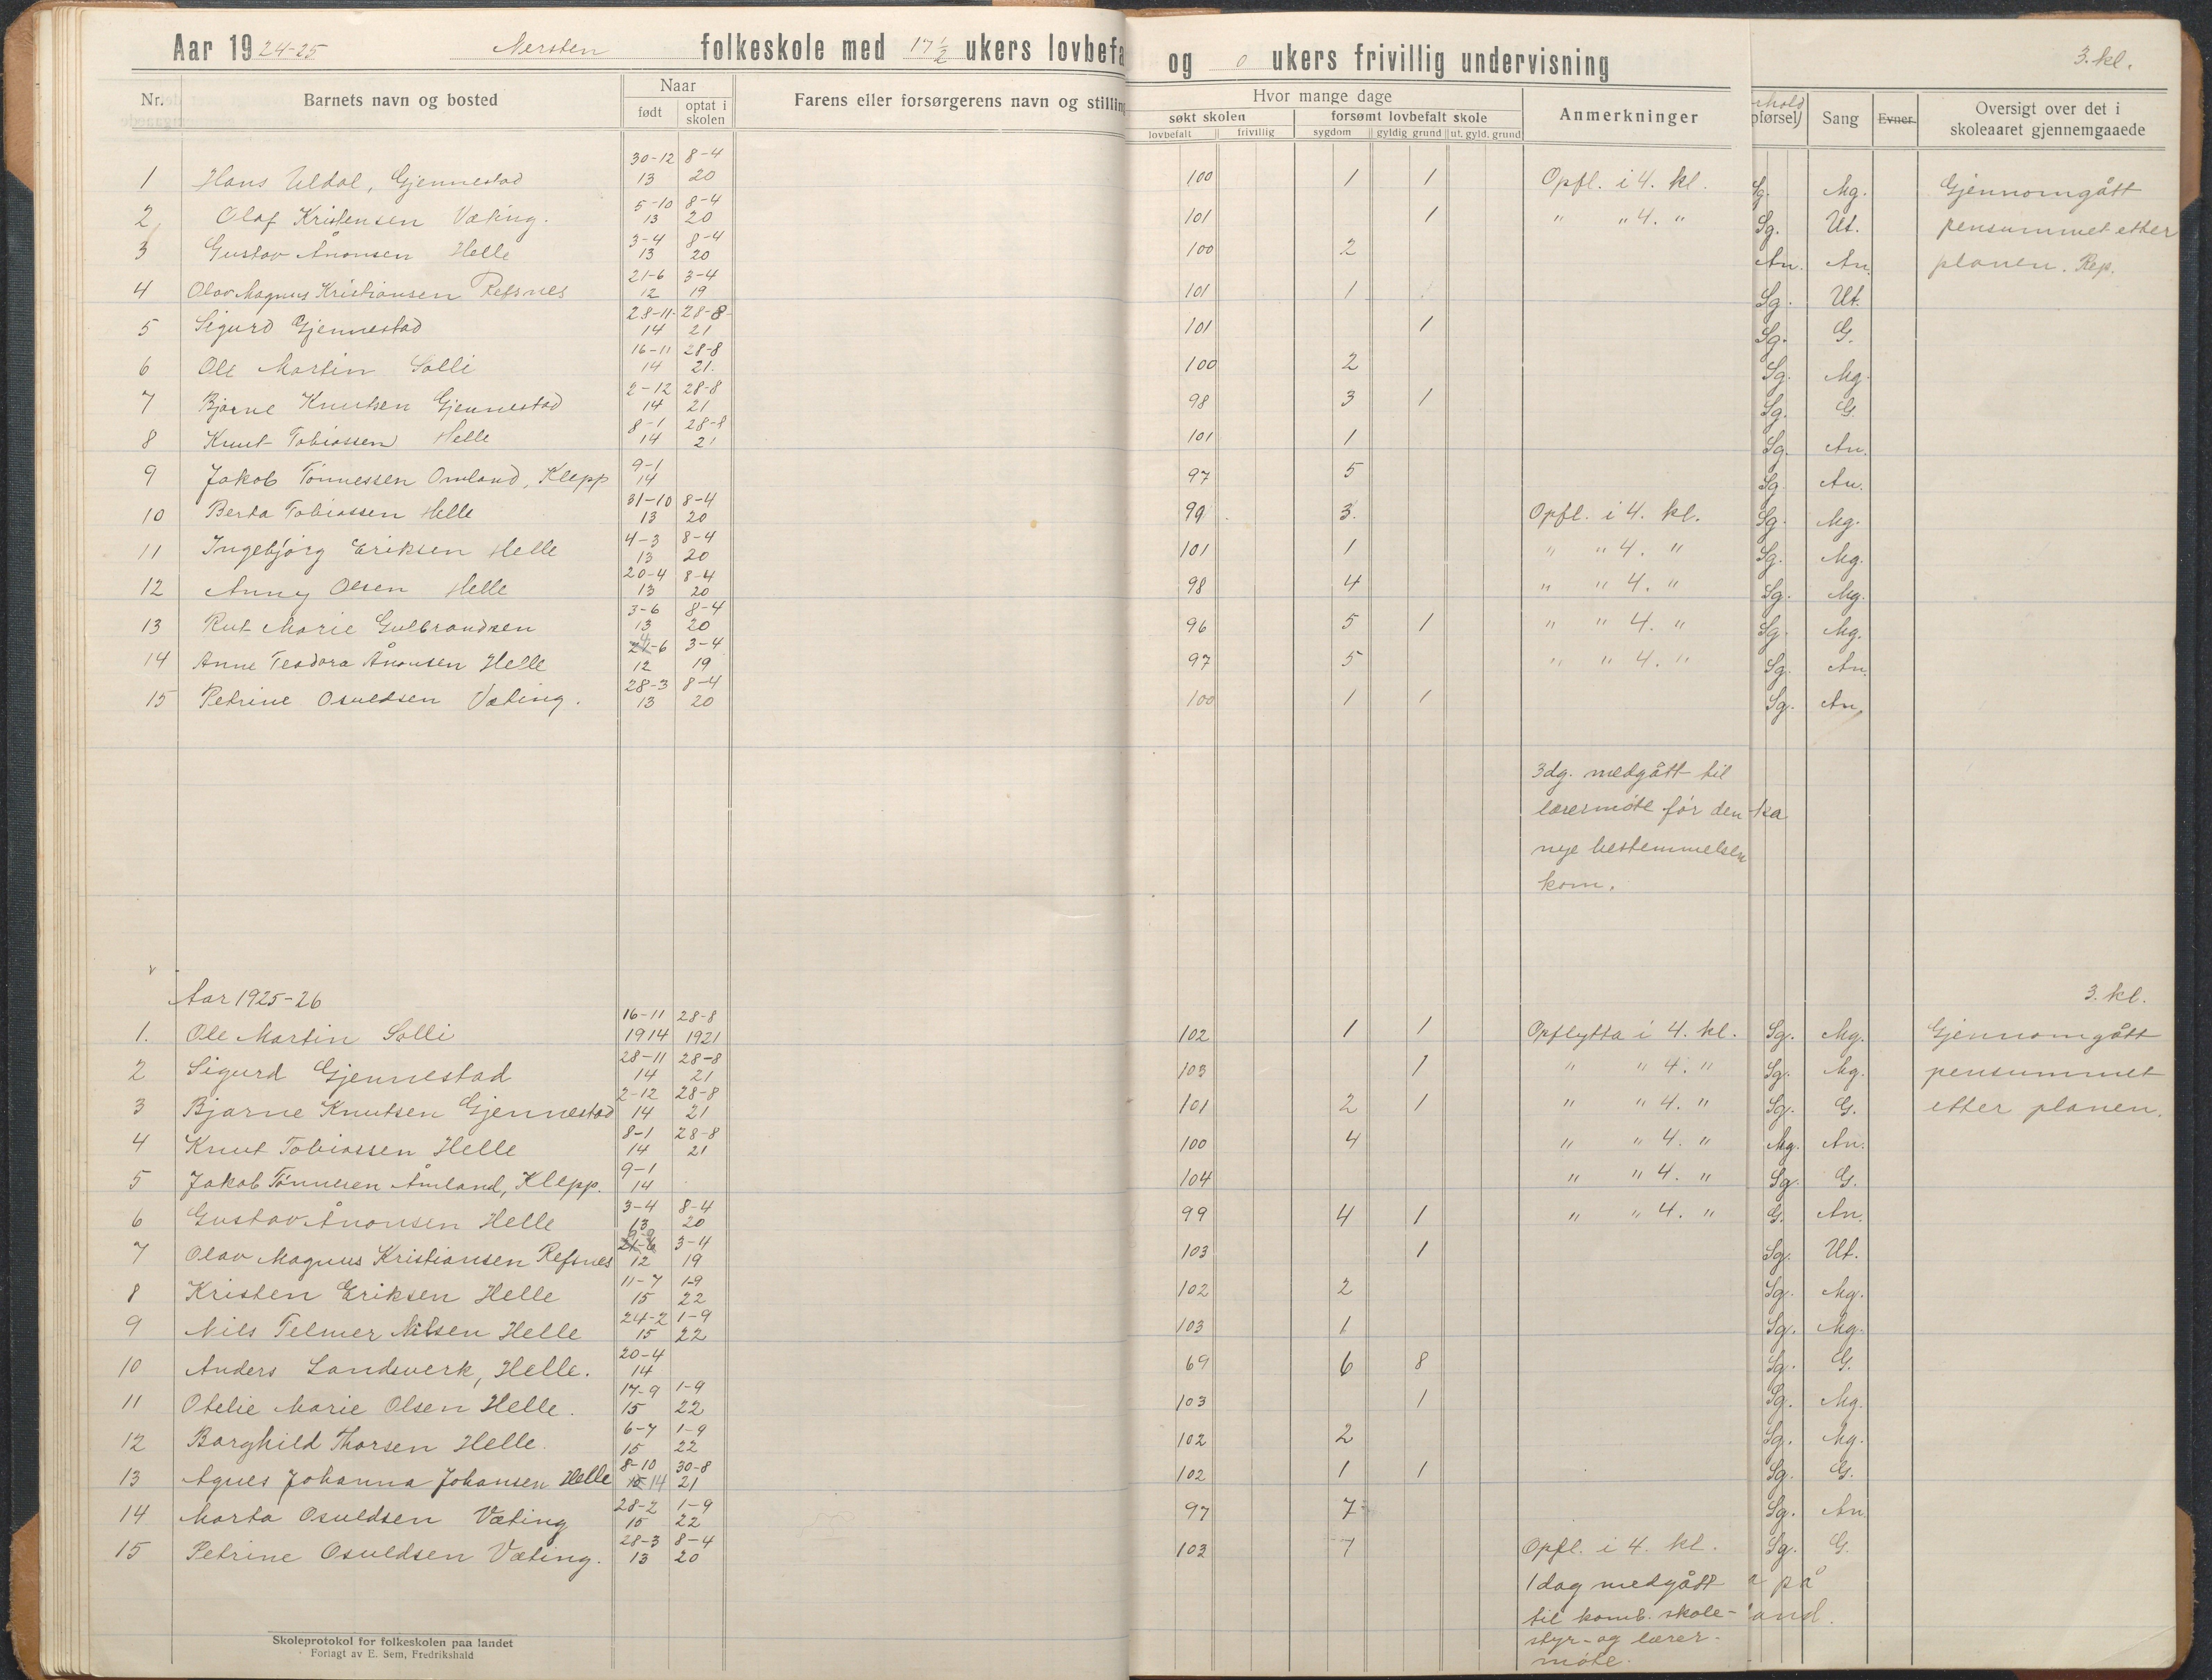 Aar 1924-25 Nersten folkeskole med 17 1/2 ukers lovbefa og 0 ukers frivillig undervisning 3. kl.
Nr. Barnets navn og bosted Naar født optat i skolen Farens eller forsørgerens navn og stilling Hvor mange dage søkt skolen lovbefalt frivillig forsømt lovbefalt skole sygdom gyldig grund ut. gyld. grund Anmerkninger Sang Evner Oversigt over det i skoleaaret gjennemgaaede
1 Hans Uldal, Gjennestad 30-12 13 8-4 20 100 1 1 Opfl. i 4. kl. Sg. Mg. Gjennomgått
2 Olaf Kristensen Væting. 5-10 13 8-4 20 101 1 " " 4. " Sg. Ut. pensummet etter
3 Gustav Ånonsen Helle 3-4 13 8-4 20 100 2 An. An. planen. Rep.
4 Olav Magnus Kristiansen Refsnes 21-6 12 3-4 19 101 1 Sg. Ut.
5 Sigurd Gjennestad 28-11 14 28-8 21 101 1 Sg. G.
6 Ole Martin Solli 16-11 14 28-8 21. 100 2 Sg. Mg.
7 Bjarne Knutsen Gjennestad 2-12 14 28-8 21 98 3 1 Sg. G.
8 Knut Tobiassen Helle 8-1 14 28-8 21 101 1 Sg. An.
9 Jakob Tønnessen Omland, Klepp 9-1 14 97 5 Sg. An.
10 Berta Tobiassen Helle 31-10 13 8-4 20 99 3. Opfl. i 4. kl. Sg. Mg.
11 Ingebjørg Eriksen Helle 4-3 13 8-4 20 101 1 " " 4. " Sg. Mg.
12 Anny Olsen Helle 20-4 13 8-4 20 98 4 " " 4. " Sg. Mg.
13 Rut Marie Gulbrandsen 3-6 13 8-4 20 96 5 1 " " 4. " Sg. Mg.
14 Anne Teodora Ånonsen Helle 24-6 12 3-4 19 97 5 " " 4. " Sg. An.
15 Petrine Osuldsen Væting. 28-3 13 8-4 20 100 1 1 Sg. An.
3 dg. medgått til
lærermøte før den
nye bestemmelsen
kom.
Aar 1925-26 3. kl.
1. Ole Martin Solli 16-11 1914 28-8 1921 102 1 1 Opflytta i 4. kl. Sg. Mg. Gjennomgått
2 Sigurd Gjennestad 28-11 14 28-8 21 103 1 " " 4. " Sg. Mg. pensummet
3 Bjarne Knutsen Gjennestad 2-12 14 28-8 21 101 2 1 " " 4. " Sg. G. etter planen.
4 Knut Tobiassen Helle 8-1 14 28-8 21 100 4 " " 4. " Mg. An.
5 Jakob Tønnesen Åmland, Klepp. 9-1 14 104 " " 4. " Sg. G.
6 Gustav Ånonsen Helle 3-4 13 8-4 20 99 4 1 " " 4. " G. An.
7 Olav Magnus Kristiansen Refsnes 12 3-4 19 103 1 Sg. Ut.
8 Kristen Eriksen Helle 11-7 15 1-9 22 102 2 Sg. Mg.
9 Nils Telmer Nilsen Helle 24-2 15 1-9 22 103 1 Sg. Mg.
10 Anders Landsverk, Helle. 20-4 14 69 6 8 Sg. G.
11 Otelie Marie Olsen Helle. 17-9 15 1-9 22 103 1 Sg. Mg.
12 Borghild Thorsen Helle. 6-7 15 1-9 22 102 2 Sg. Mg.
13 Agnes Johanna Johansen Helle 8-10 14 30-8 21 102 1 1 Sg. G.
14 Marta Osuldsen Væting 28-2 15 1-9 22 97 7 Sg. An.
15 Petrine Osuldsen Væting. 28-3 13 8-4 20 103 1 Opfl. i 4. kl. Sg. G.
1 dag medgått på
til komb. skole-
styr- og lærer-
møte.
Skoleprotokol for folkeskolen paa landet
Forlagt av E. Sem, Fredrikshald